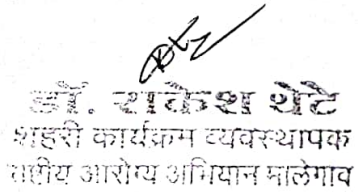 डॉ. राकेश थेटे
शहरी कार्यक्रम व्यवस्थापक
राष्ट्रीय आरोग्य अभियान मालेगाव